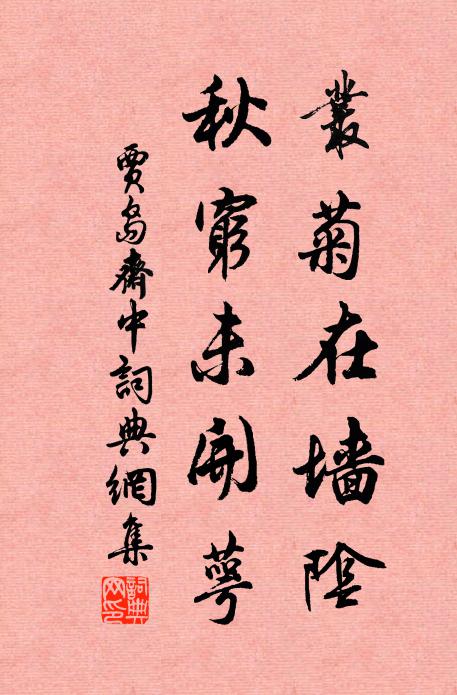 叢菊在墙陰
秋窮未開萼
賈島齋中詞典網集
詞典网印